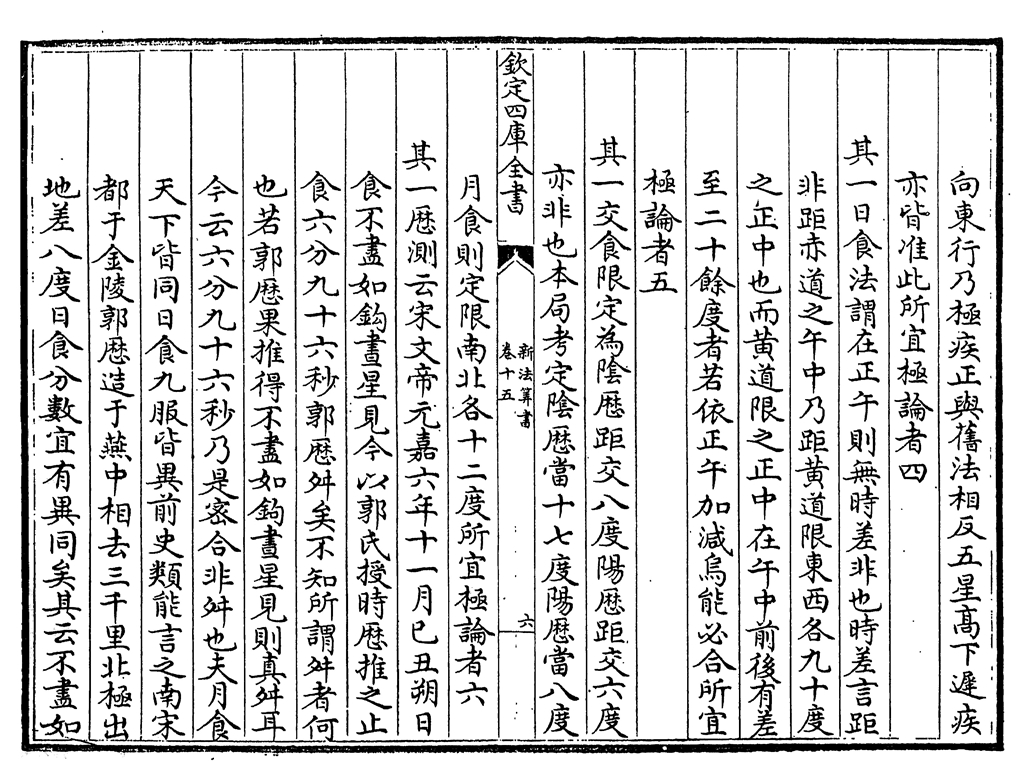 向東行乃極疾正與舊法相反五星髙下遲疾
亦皆准此所宜極論者四
其一日食法謂在正午則無時差非也時差言距
非距赤道之午中乃距黄道限東西各九十度
之正中也而黄道限之正中在午中前後有差
至二十餘度者若依正午加減烏能必合所宜
極論者五
其一交食限定為陰厯距交八度陽厯距交六度
亦非也本局考定陰厯當十七度陽厯當八度
欽定四庫全書
新法算書
卷十五
六
月食則定限南北各十二度所宜極論者六
其一厯測云宋文帝元嘉六年十一月己丑朔日
食不盡如鈎晝星見今以郭氏授時厯推之止
食六分九十六秒郭厯舛矣不知所謂舛者何
也若郭厯果推得不盡如鈎晝星見則真舛耳
今云六分九十六秒乃是宻合非舛也夫月食
天下皆同日食九服皆異前史類能言之南宋
都于金陵郭厯造于燕中相去三千里北極出
地差八度日食分數宜有異同矣其云不盡如